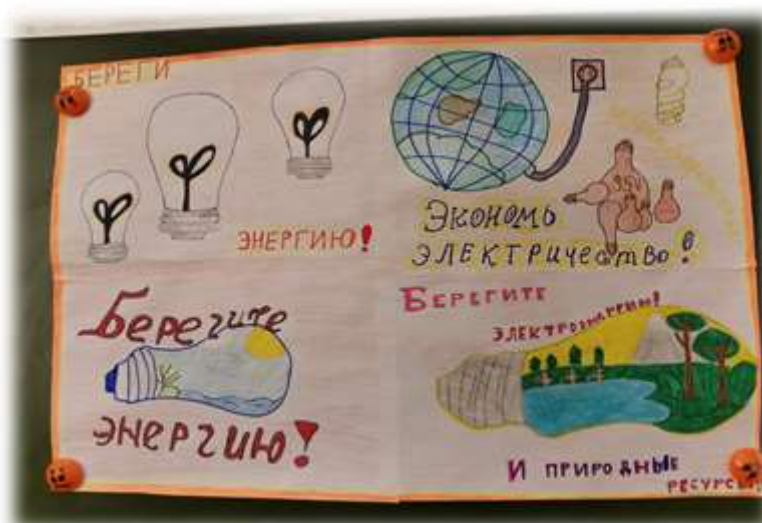 БЕРЕГИ
ЭНЕРГИЮ!
ЭКОНОМЬ
ЭЛЕКТРИЧЕСТВО!
Берегите
ЭНЕРГИЮ!
БЕРЕГИТЕ
ЭЛЕКТРОЭНЕРГИЮ!
И ПРИРОДНЫЕ
РЕСУРСЫ!